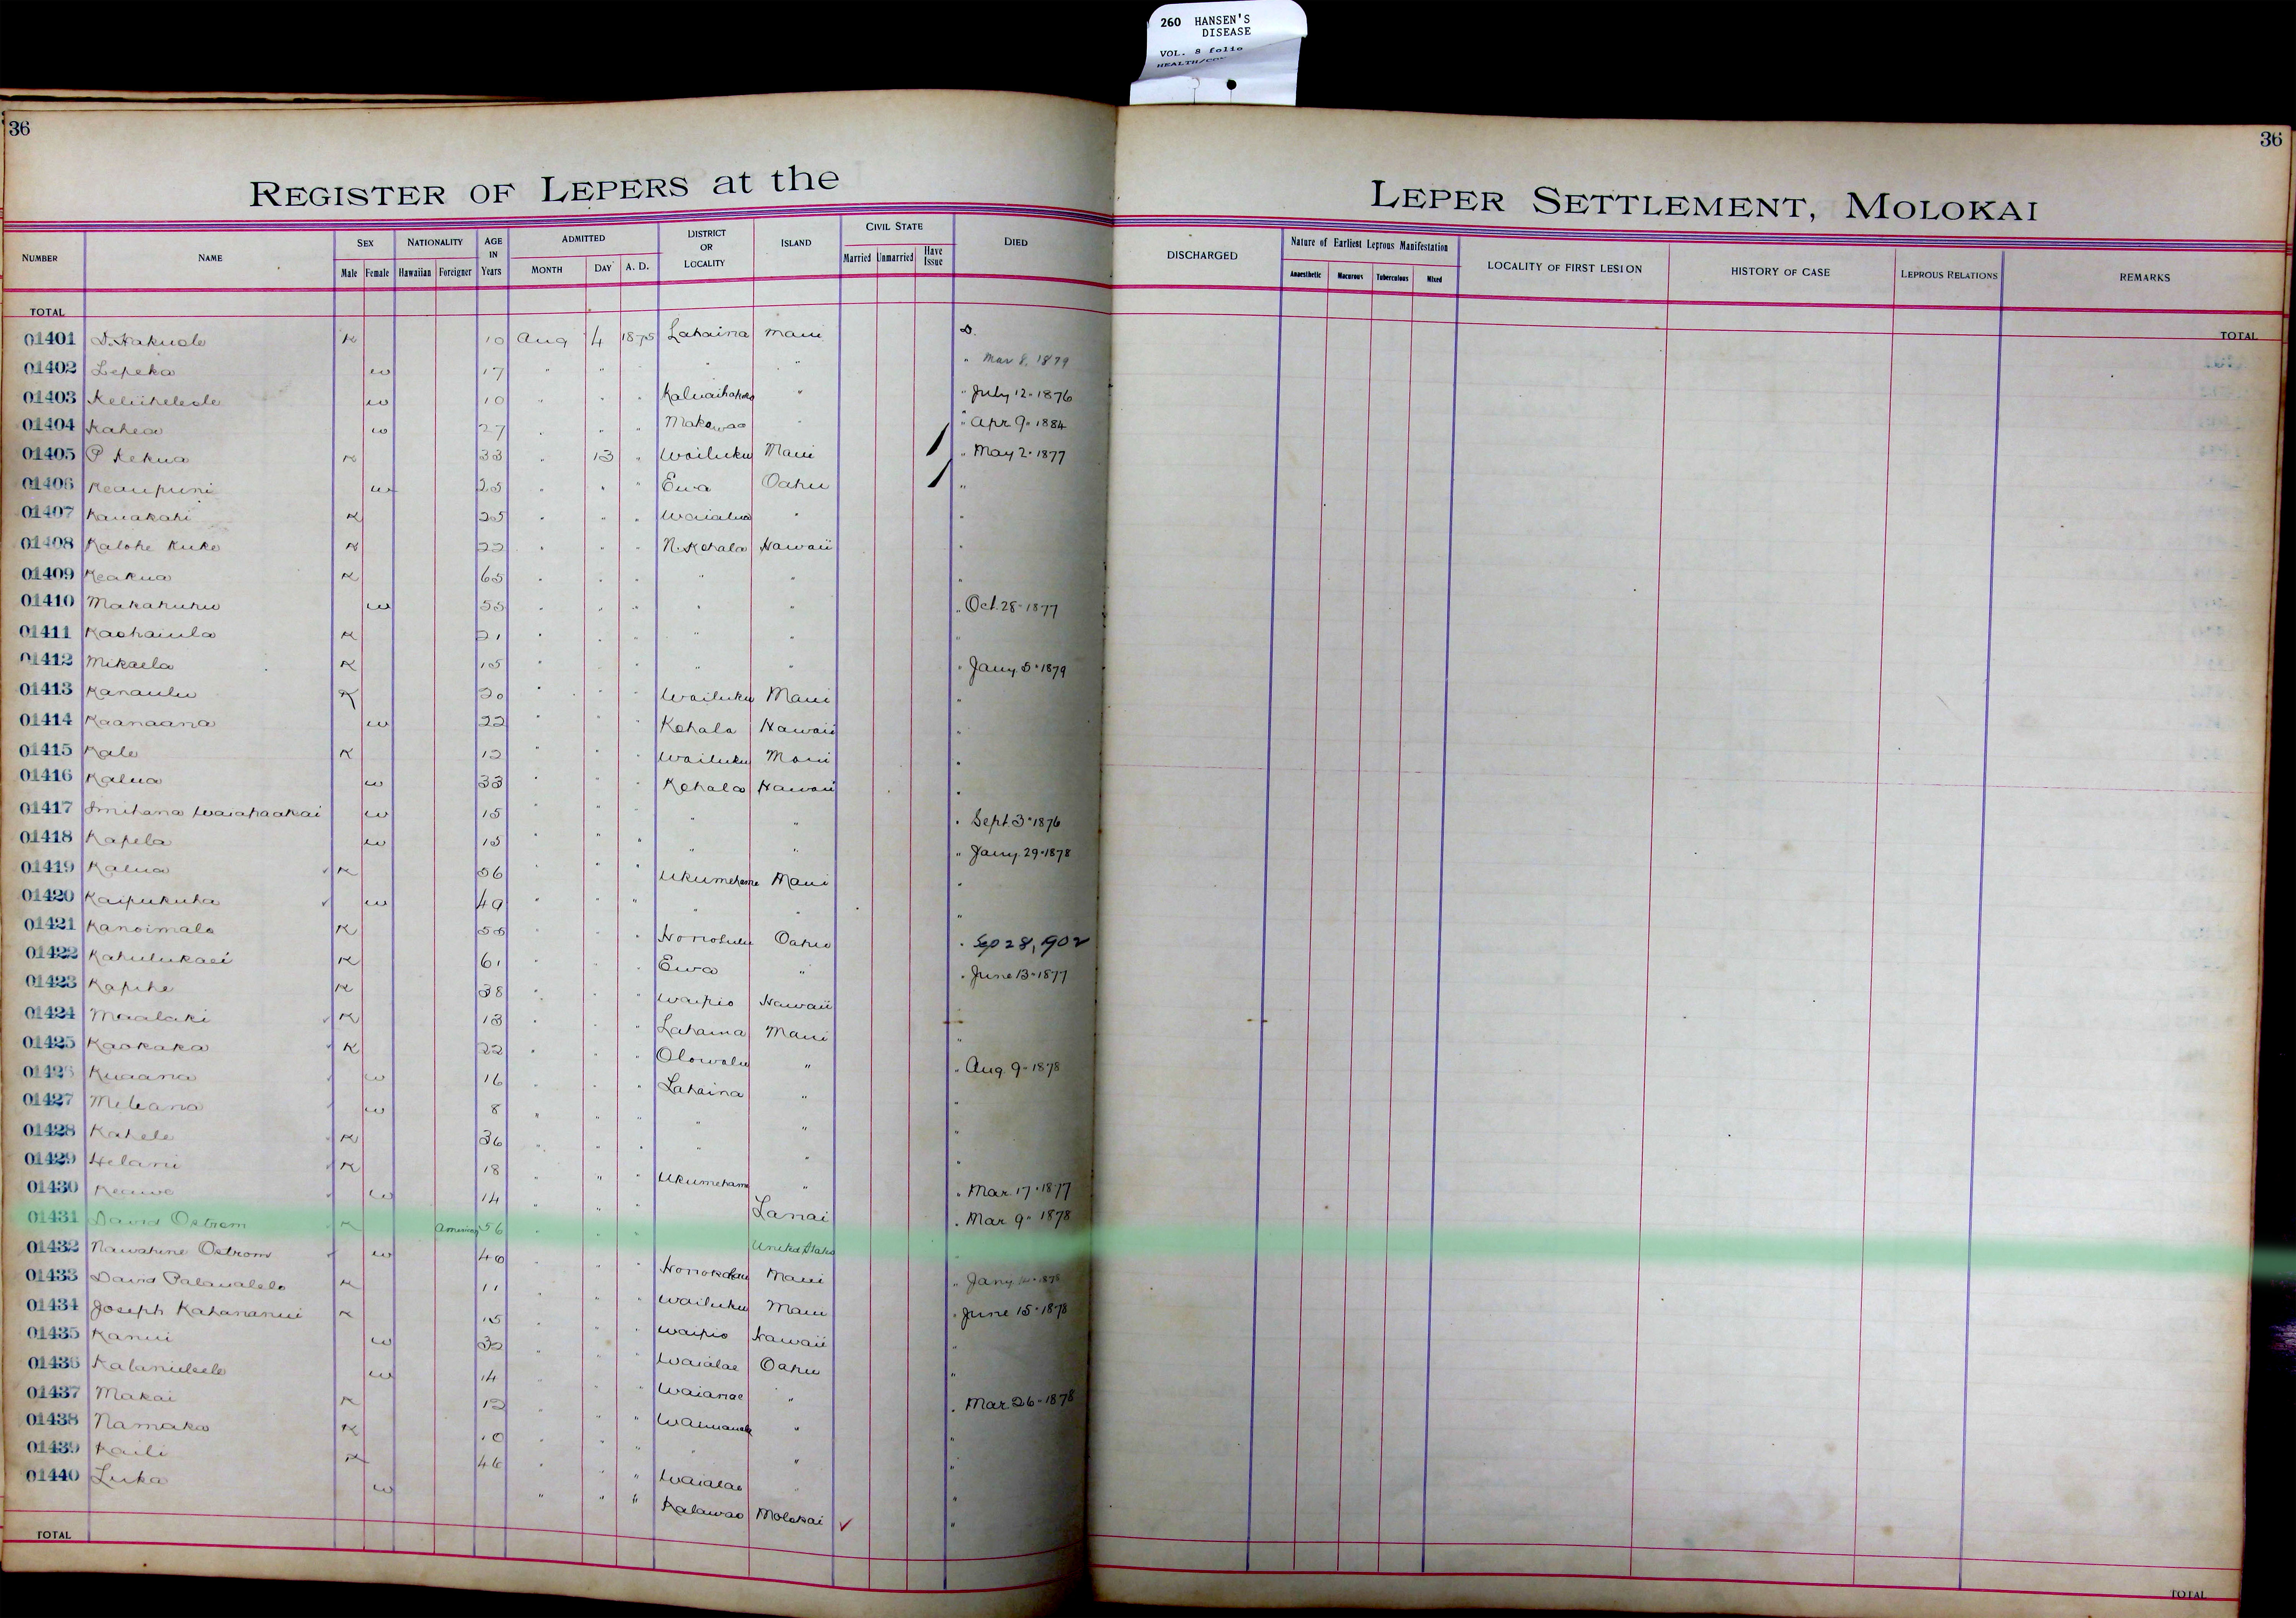 260 HANSEN'S
DISEASE
VOL. 8 folio
36
36
REGISTER OF LEPERS at the
LEPER SETTLEMENT, MOLOKAI
NUMBER NAME SEX Male Female NATIONALITY Hawaiian Foreigner AGE IN Years ADMITTED MONTH DAY A. D. DISTRICT OR LOCALITY ISLAND CIVIL STATE Married Unmarried Have Issue DIED
DISCHARGED Nature of Earliest Leprous Manifestation Anaesthetic Macurous Tuberculous Mixed LOCALITY OF FIRST LESION HISTORY OF CASE LEPROUS RELATIONS REMARKS
TOTAL
TOTAL
01401 D. Hakuole K 10 Aug 4 1875 Lahaina Maui D.
01402 Lepeka w 17 " " " " " Mar 8, 1879
01403 Keliiheleole w 10 " " " " " July 12-1876
01404 Kahea w 27 " " " Makawao " " Apr 9-1884
01405 P Kekua K 33 " 13 " Wailuku Maui " May 2-1877
01406 Keaupuni w 25 " " " Ewa Oahu "
01407 Kauakahi K 25 " " " Waialua " "
01408 Kalohe Kuke K 22 " " " N. Kohala Hawaii "
01409 Keakua K 65 " " " " " "
01410 Makahuhu w 55 " " " " " " Oct. 28-1877
01411 Kaohaiula K 21 " " " " " "
01412 Mikaela K 15 " " " " " " Jany. 5-1879
01413 Kanaulu K 20 " " " Wailuku Maui "
01414 Kaanaana w 22 " " " Kohala Hawaii "
01415 Kale K 12 " " " Wailuku Maui "
01416 Kalua w 33 " " " Kohala Hawaii "
01417 w 15 " " " " " " Sept. 3-1876
01418 Kapela w 15 " " " " " " Jany. 29-1878
01419 Kalua K 56 " " " Ukumehame Maui "
01420 Kaipukuha w 49 " " " " " "
01421 Kanoimalo K 55 " " " Honolulu Oahu " Sep 28, 1902
01422 Kahulukaei K 61 " " " Ewa " " June 13-1877
01423 Kapihe K 38 " " " Waipio Hawaii
01424 Maalaki K 13 " " " Lahaina Maui "
01425 Kaokaka K 22 " " " Olowalu " " Aug. 9-1878
01426 Kuaana w 16 " " " Lahaina " "
01427 Meleana w 8 " " " " " "
01428 Kahele K 36 " " " " " "
01429 Helani K 18 " " " Ukumehame " " Mar. 17-1877
01430 Keawe w 14 " " " Lanai " Mar. 9-1878
01431 David Ostrom K American 56 " " " United States "
01432 Nawahine Ostrom w 40 " " " Honokohau Maui " Jany. 1878
01433 David Palaualelo K 11 " " " Wailuku Maui " June 15-1878
01434 Joseph Kahananui K 15 " " " Waipio Hawaii "
01435 Kanui w 32 " " " Waialae Oahu "
01436 w 14 " " " Waianae " " Mar. 26-1878
01437 Makai K 12 " " " " "
01438 Namaka K 10 " " " " " "
01439 Kaili K 46 " " " Waialae " "
01440 Luka w " " " Kalawao Molokai ✓ "
TOTAL
TOTAL